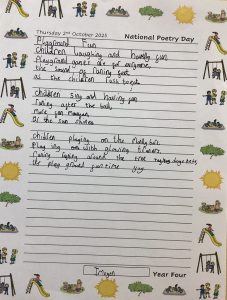 Thursday 2nd October 2025
National Poetry Day
Playground Fun
Children laughing and having fun
Playground games are for everyone,
the sound of raining feet
as the children rush
children sing and having fun
runing after the ball,
more fun
as the sun shines
children playing on the
Play ing with glowing flowers
runing around the tree
the play ground fun time
Imogen
Year Four